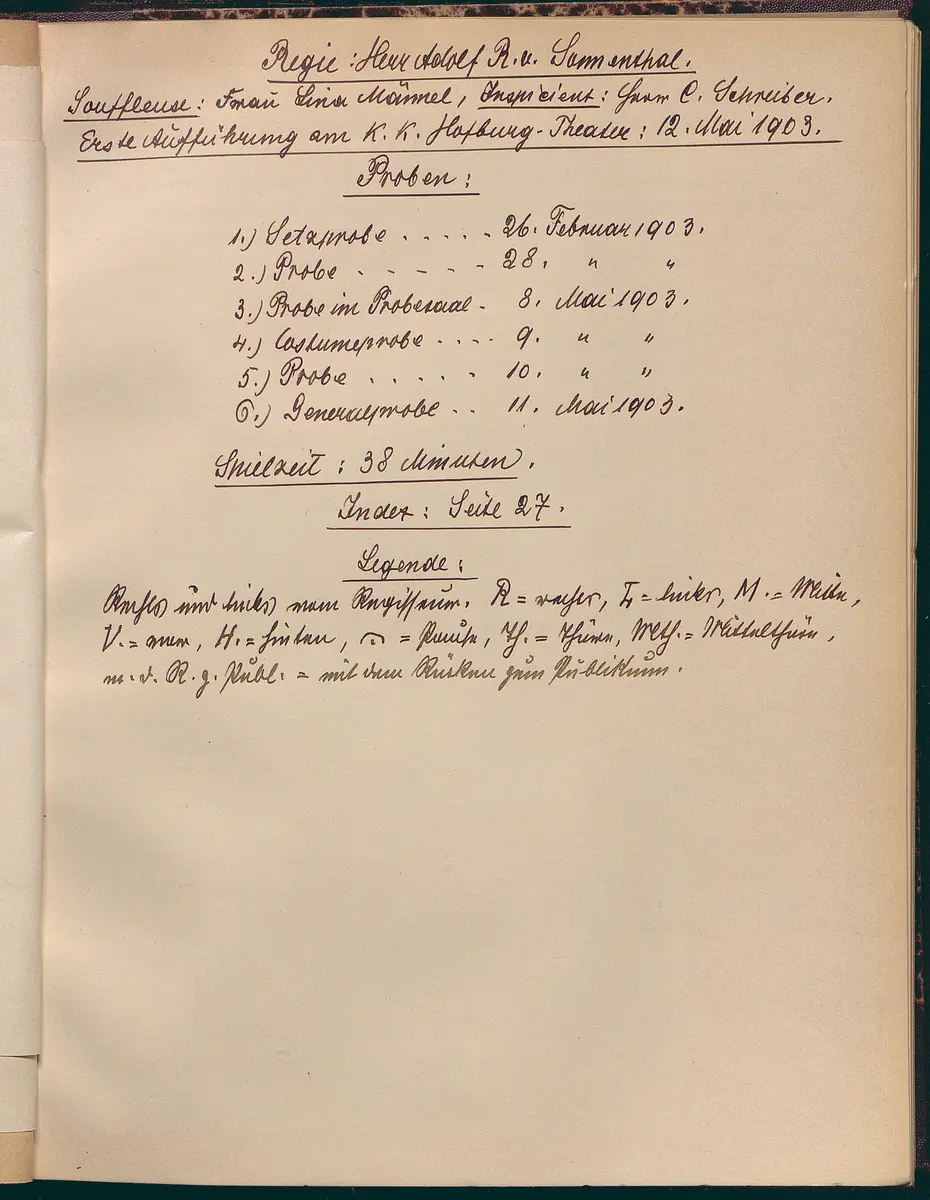 Regie : Herr Adolf R. v. Sonnenthal.
Souffleuse : Frau Lina Männel, Inspicient : Herr C. Schreiber.
Erste Aufführung am K. K. Hofburg-Theater : 12. Mai 1903.
Proben :
1.) Setzprobe . . . . . 26. Februar 1903.
2.) Probe . - - - - - 28. " "
3.) Probe im Probesaal - 8. Mai 1903.
4.) Costumeprobe . . . . 9. " "
5.) Probe . . . . . . 10. " "
6.) Generalprobe . . 11. Mai 1903.
Spielzeit : 38 Minuten.
Index : Seite 27.
Legende :
Rechts und links vom Regisseur. R = rechts, L = links, M. = Mitte,
V. = vorn, H. = hinten, 𝄐 = Pause, Th. = Thüre, Mth. = Mittelthüre,
m. d. R. z. Publ. = mit dem Rücken zum Publikum.